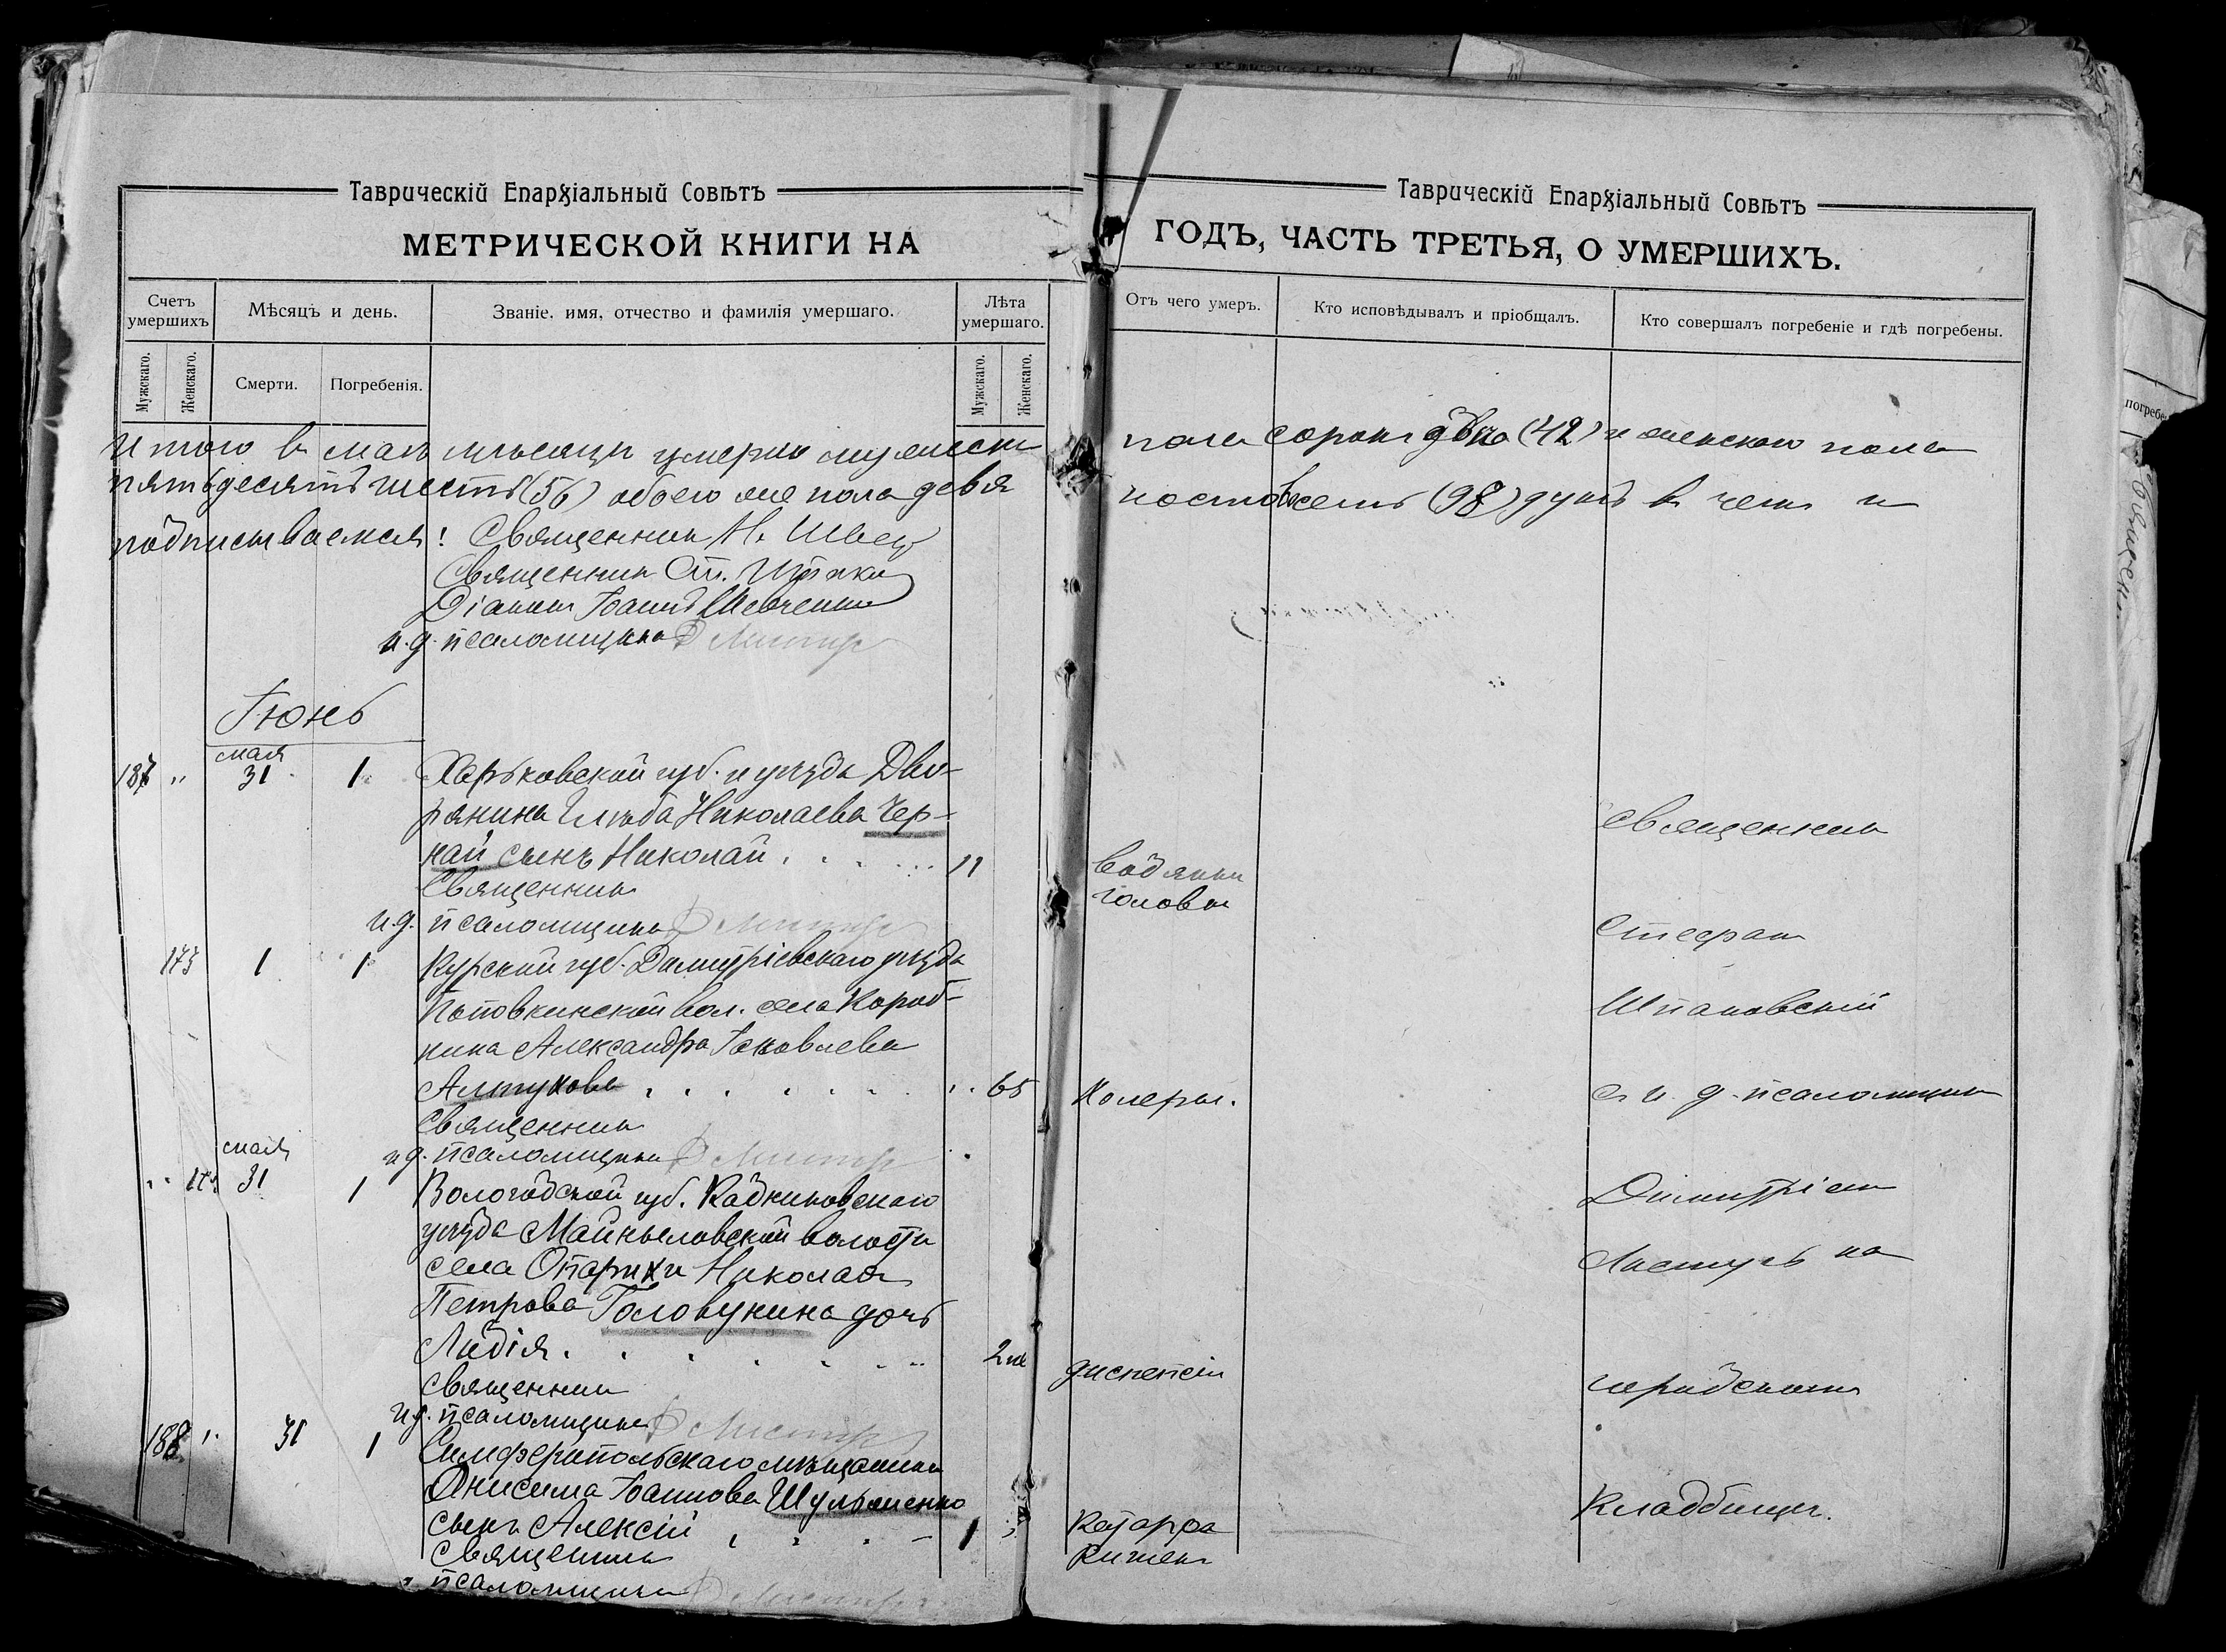 Таврическій Епархіальный Совѣтъ
МЕТРИЧЕСКОЙ КНИГИ НА
Счетъ умершихъ
Мѣсяцъ и день.
Званіе, имя, отчество и фамилія умершаго.
Лѣта умершаго.
Мужскаго.
Женскаго.
Смерти.
Погребенія.
Мужскаго.
Женскаго.
Итого въ маѣ мѣсяцѣ умерло мужеска
пятьдесятъ шесть (56) обоего же пола девя
подписываемся: Священникъ Н. Швецъ
Священникъ Ст.
Діаконъ Іоаннъ Шевченко
и.д. псаломщика Д Листиръ
Іюнь
мая
187 " 31 1 Харьковской губ. и уѣзда Дво-
рянина Глѣба Николаева Чер-
най сынъ Николай . . . . 11
Священникъ
и.д. псаломщика Д
173 1 1 Курской губ. Димитріевскаго уѣзда
вол. села Короб-
кина Александра Іаковлева
Алтухова . . . . . . 65
Священникъ
мая и.д. псаломщика Д
31 1 Вологодской губ. Кадниковскаго
уѣзда волости
села Опарихи Николая
Петрова Головукина дочь
Лидія . . . . . . 2 м
Священникъ
и.д. псаломщика Д
188 " 31 1 Симферопольскаго мѣщанина
Анисима Іоаннова Шульженко
сынъ Алексій . . . - 1
Священникъ
псаломщика Д
Таврическій Епархіальный Совѣтъ
ГОДЪ, ЧАСТЬ ТРЕТЬЯ, О УМЕРШИХЪ.
Отъ чего умеръ.
Кто исповѣдывалъ и пріобщалъ.
Кто совершалъ погребеніе и гдѣ погребены.
пола сорокъ два (42) и женскаго пола
ностовосемь (98) душъ въ чемъ и
Священникъ
водянки
головы
Стефан
Шпаковскій
Холеры.
съ и. д. псаломщика
Димитріем
на
диспепсіи
городскомъ
Кладбищѣ.
Катарра
Кишекъ
погребе